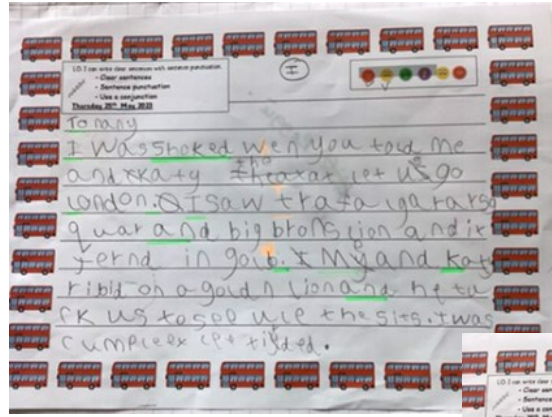 LO. I can write clear sentences with sentence punctuation.
- Clear sentences
- Sentence punctuation
- Use a conjunction
Thursday 25th May 2023
I
To many
I was shoked wen you told me
and Katy let us go
london. I saw trafalgar arsq
quar and big brons lion and it
ternd in gold. I My and Katy
ribid on a gold n lion and he tu
ck us to see the sits. I was
cumpleex
LO. I can write clear sen
- Clear sen
- Sentence
- Use a con